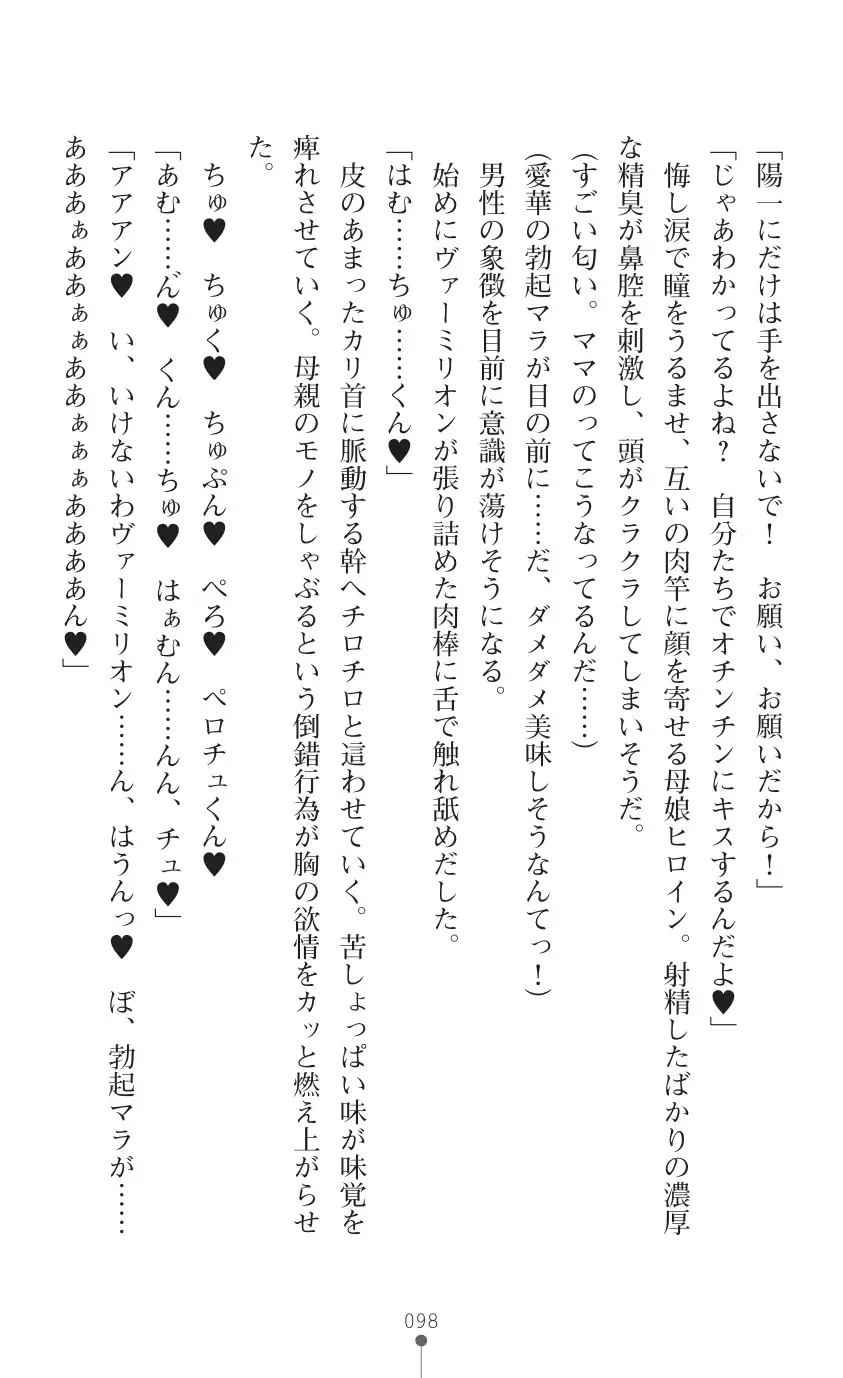 「陽一にだけは手を出さないで！　お願い、お願いだから！」
「じゃあわかってるよね？　自分たちでオチンチンにキスするんだよ♥」
　悔し涙で瞳をうるませ、互いの肉竿に顔を寄せる母娘ヒロイン。射精したばかりの濃厚
な精臭が鼻腔を刺激し、頭がクラクラしてしまいそうだ。
（すごい匂い。ママのってこうなってるんだ……）
（愛華の勃起マラが目の前に……だ、ダメダメ美味しそうなんてっ！）
　男性の象徴を目前に意識が蕩けそうになる。
　始めにヴァーミリオンが張り詰めた肉棒に舌で触れ舐めだした。
「はむ……ちゅ……くん♥」
　皮のあまったカリ首に脈動する幹へチロチロと這わせていく。苦しょっぱい味が味覚を
痺れさせていく。母親のモノをしゃぶるという倒錯行為が胸の欲情をカッと燃え上がらせ
た。
　ちゅ♥　ちゅく♥　ちゅぷん♥　ぺろ♥　ペロチュくん♥
「あむ……ん゛♥　くん……ちゅ♥　はぁむん……んん、チュ♥」
「アアアン♥　い、いけないわヴァーミリオン……ん、はうんっ♥　ぼ、勃起マラが……
あああぁああぁぁああぁぁぁああああん♥」
098